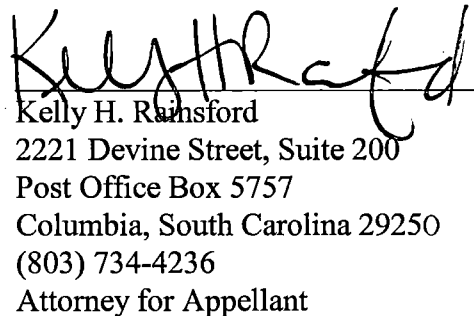 Kelly H Rainsford
Kelly H. Rainsford
2221 Devine Street, Suite 200
Post Office Box 5757
Columbia, South Carolina 29250
(803) 734-4236
Attorney for Appellant